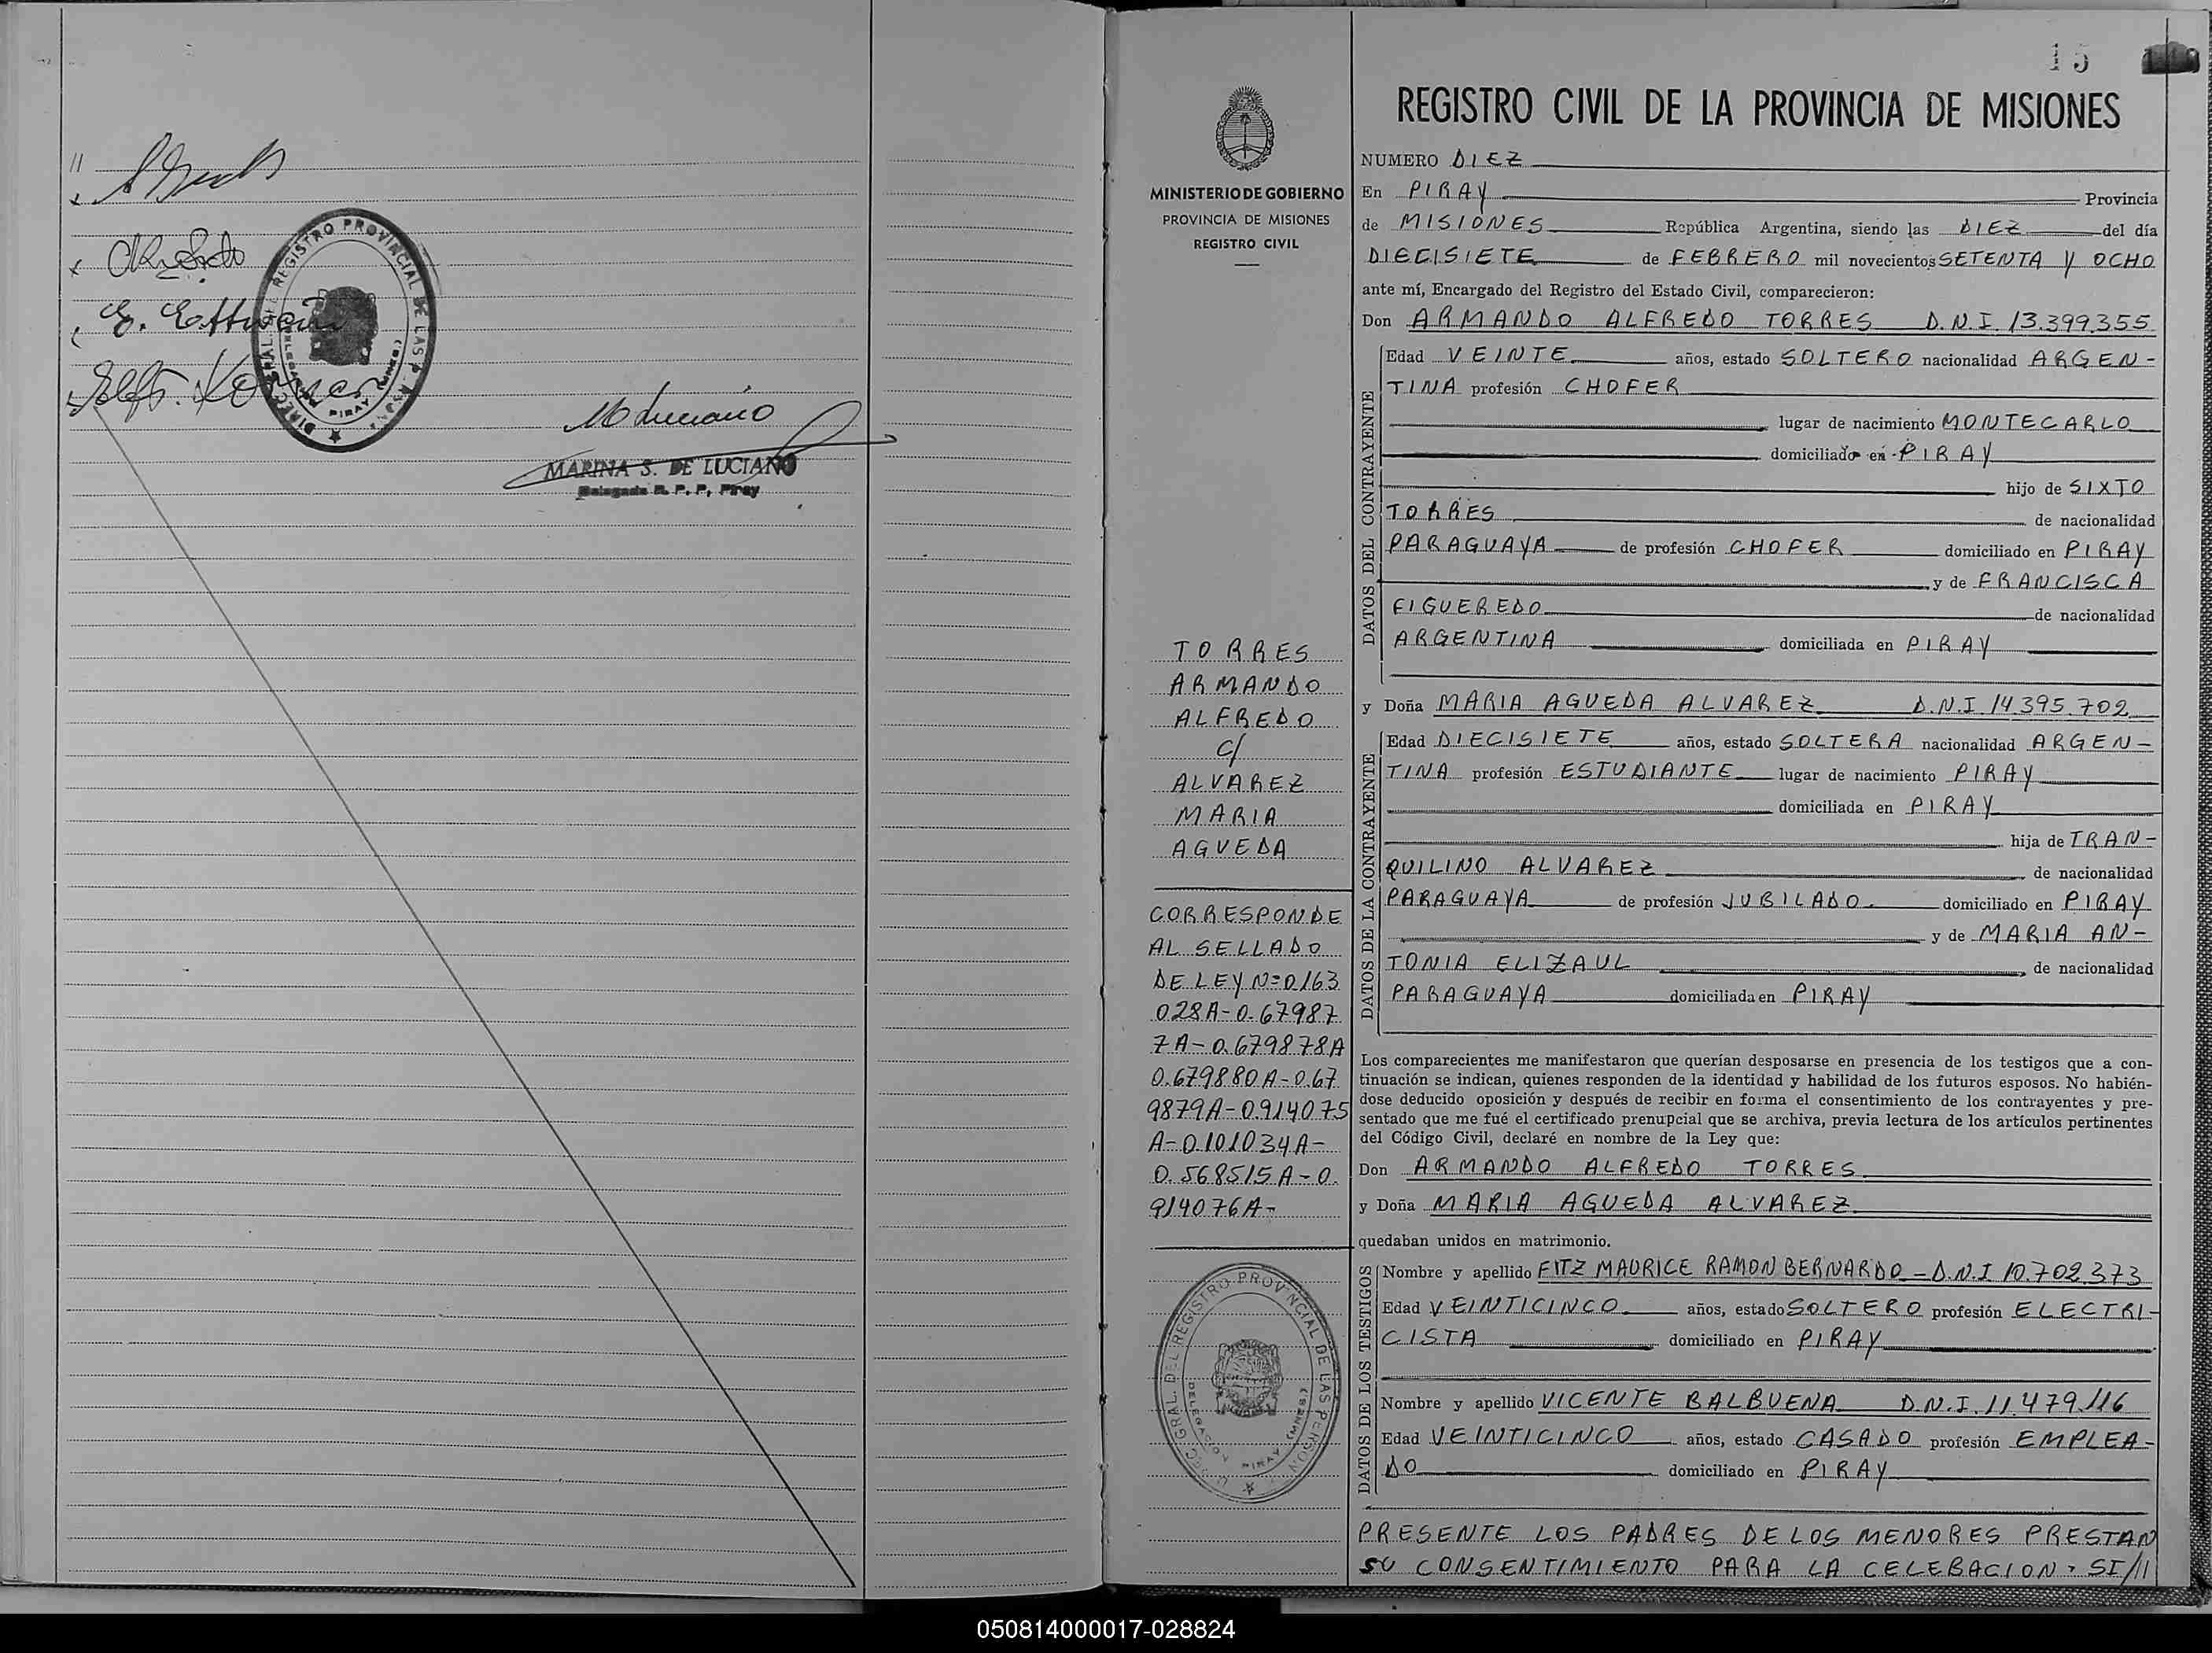 //
E. Ettwein
DIREC. GRAL. DEL REGISTRO PROVINCIAL DE LAS PERSON
DELEGACION PIRAY (MNES.)
M Luciano
MARINA S. DE LUCIANO
Delegada R. P. P. Piray
15
REGISTRO CIVIL DE LA PROVINCIA DE MISIONES
MINISTERIO DE GOBIERNO
PROVINCIA DE MISIONES
REGISTRO CIVIL
TORRES
ARMANDO
ALFREDO
C/
ALVAREZ
MARIA
AGUEDA
CORRESPONDE
AL SELLADO
DE LEY N=0163
028A-0.67987
7A-0.679878A
0.679880A-0.67
9879A-0.914075
A-0.101034A-
0.568515A-0.
914076A-
DIREC. GRAL. DEL REGISTRO PROVINCIAL DE LAS PERSON
DELEGACION PIRAY (MNES.)
NUMERO DIEZ
En PIRAY Provincia
de MISIONES República Argentina, siendo las DIEZ del día
DIECISIETE de FEBRERO mil novecientos SETENTA Y OCHO
ante mí, Encargado del Registro del Estado Civil, comparecieron:
Don ARMANDO ALFREDO TORRES D.N.I. 13.399.355
DATOS DEL CONTRAYENTE
Edad VEINTE años, estado SOLTERO nacionalidad ARGEN-
TINA profesión CHOFER
lugar de nacimiento MONTECARLO
domiciliado en PIRAY
hijo de SIXTO
TORRES de nacionalidad
PARAGUAYA de profesión CHOFER domiciliado en PIRAY
y de FRANCISCA
FIGUEREDO de nacionalidad
ARGENTINA domiciliada en PIRAY
y Doña MARIA AGUEDA ALVAREZ D.N.I 14395.702
DATOS DE LA CONTRAYENTE
Edad DIECISIETE años, estado SOLTERA nacionalidad ARGEN-
TINA profesión ESTUDIANTE lugar de nacimiento PIRAY
domiciliada en PIRAY
hija de TRAN-
QUILINO ALVAREZ de nacionalidad
PARAGUAYA de profesión JUBILADO. domiciliado en PIRAY
y de MARIA AN-
TONIA ELIZAUL de nacionalidad
PARAGUAYA domiciliada en PIRAY
Los comparecientes me manifestaron que querían desposarse en presencia de los testigos que a con-
tinuación se indican, quienes responden de la identidad y habilidad de los futuros esposos. No habién-
dose deducido oposición y después de recibir en forma el consentimiento de los contrayentes y pre-
sentado que me fué el certificado prenupcial que se archiva, previa lectura de los artículos pertinentes
del Código Civil, declaré en nombre de la Ley que:
Don ARMANDO ALFREDO TORRES
y Doña MARIA AGUEDA ALVAREZ
quedaban unidos en matrimonio.
DATOS DE LOS TESTIGOS
Nombre y apellido FITZ MAURICE RAMON BERNARDO - D.N.I 10.702.373
Edad VEINTICINCO años, estado SOLTERO profesión ELECTRI-
CISTA domiciliado en PIRAY
Nombre y apellido VICENTE BALBUENA D.N.I. 11.479.116
Edad VEINTICINCO años, estado CASADO profesión EMPLEA-
DO domiciliado en PIRAY
PRESENTE LOS PADRES DE LOS MENORES PRESTAN
SU CONSENTIMIENTO PARA LA CELEBACION, SI//
050814000017-028824